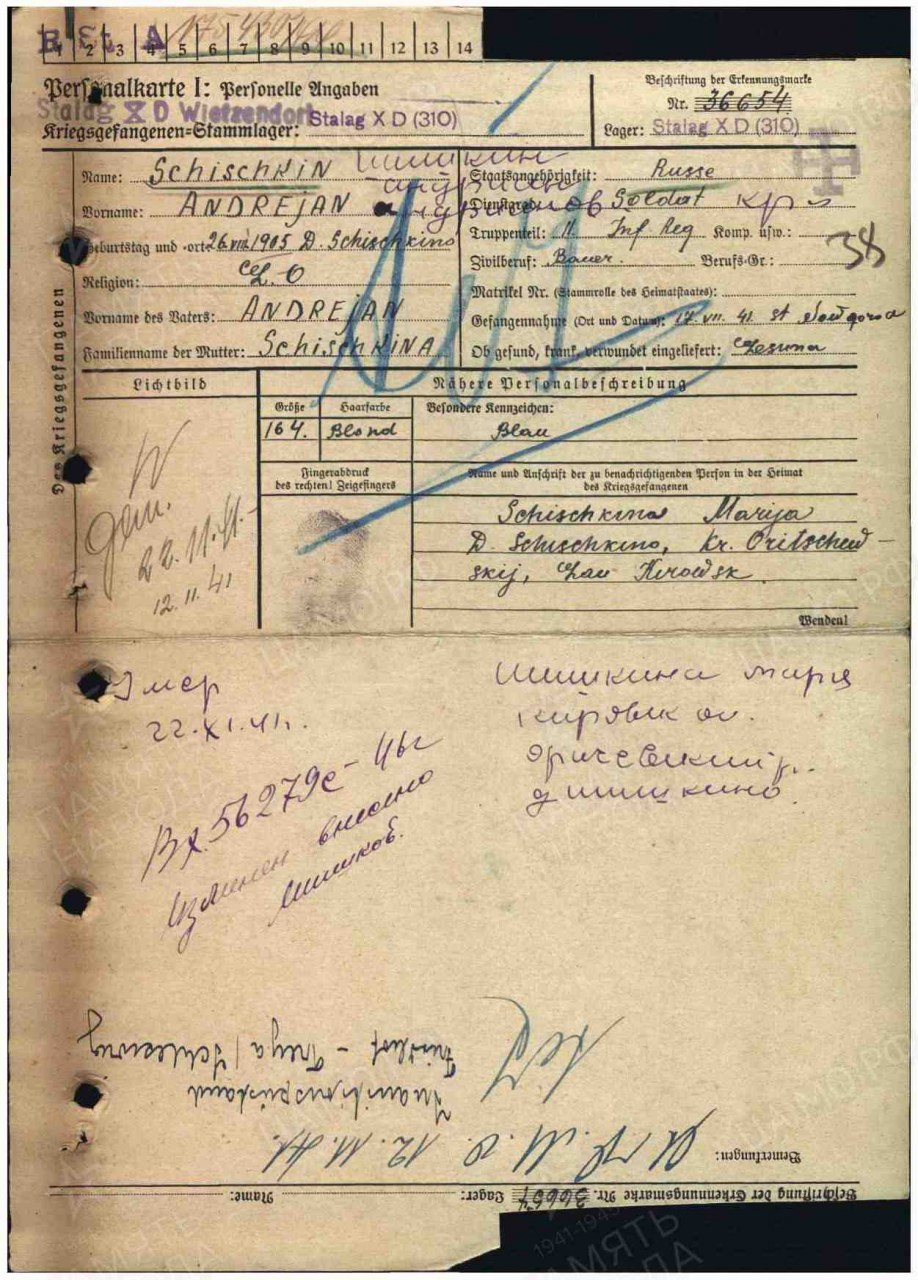 B. St. A
1 2 3 4 5 6 7 8 9 10 11 12 13 14
Personalkarte I: Personelle Angaben
Stalag X D Wietzendorf
Kriegsgefangenen=Stammlager: Stalag X D (310)
Beschriftung der Erkennungsmarke
Nr. 36654
Lager: Stalag X D (310)
Des Kriegsgefangenen
Name: Schischkin Шишкин
Vorname: ANDREJAN
Geburtstag und -ort: 26 VIII 1905 D. Schischkino
Religion: O
Vorname des Vaters: ANDREJAN
Familienname der Mutter: Schischkina
Staatsangehörigkeit: Russe
Dienstgrad: Soldat
Truppenteil: 11. Inf Reg Komp. usw.:
Zivilberuf: Bauer. Berufs-Gr.: 38
Matrikel Nr. (Stammrolle des Heimatstaates):
Gefangennahme (Ort und Datum): 17. VII. 41. st Nowgorod
Ob gesund, krank, verwundet eingeliefert:
Lichtbild
Nähere Personalbeschreibung
Größe Haarfarbe Besondere Kennzeichen:
164. Blond Blau
Fingerabdruck
des rechten! Zeigefingers
Name und Anschrift der zu benachrichtigenden Person in der Heimat
des Kriegsgefangenen
Schischkina Marija
D. Schischkino, Kr. Oritschew-
skij, Kirowsk
Wenden!
22.11.41.
12.11.41
Умер
22.XI.41г.
Шишкина Мария
Кировск об.
Оричевский р.
д Шишкино.
Вх 56279с-46г
Изменен внесено
Шишков.
Bemerkungen:
12.11.41.
Friedhof - Treya / Schleswig
Beschriftung der Erkennungsmarke Nr. 36654 Lager: Name: